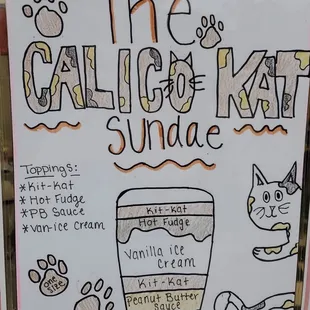 The
CALICO KAT
Sundae
Toppings:
*Kit-Kat
*Hot Fudge
*PB Sauce
*Van-Ice Cream
one
size
Kit-Kat
Hot Fudge
Vanilla ice
Cream
Kit-Kat
Peanut Butter
Sauce